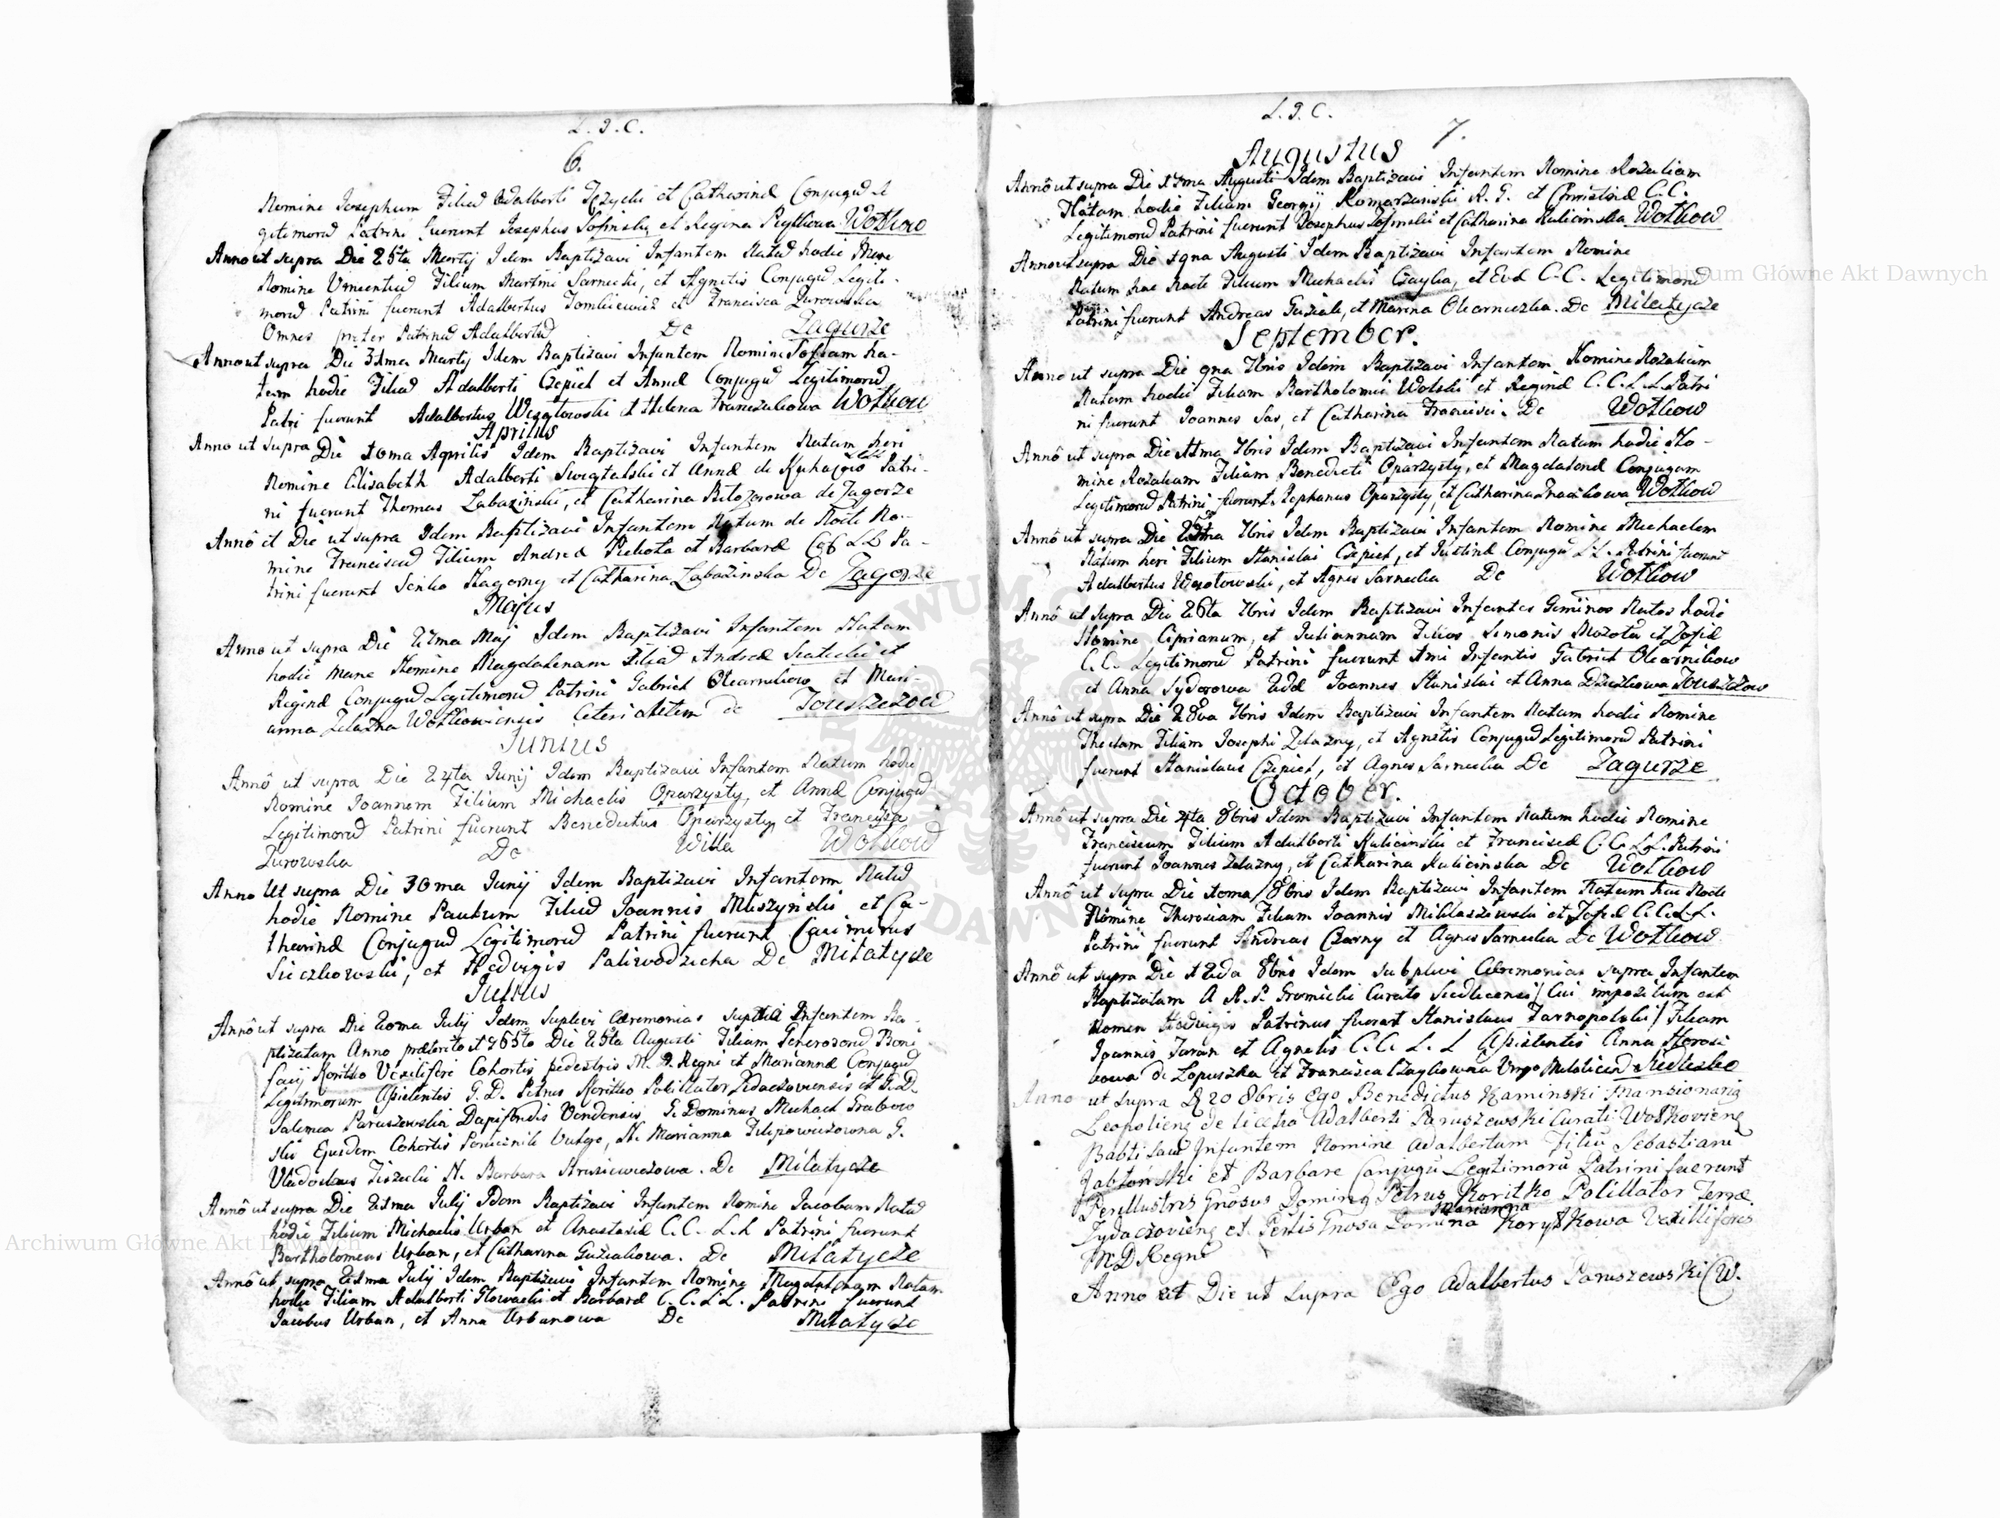 L. J. C.
6.
Nomine Josephum Filiũ Adalberti et Catharinæ Conjugũ Le
gitimorũ Patrini fuerunt Josephus et Regina Wołkow
Anno ut supra Die 25ta Martij Idem Baptizavi Infantem Natũ hodie Mane
Nomine Vincentiũ Filium Martini Sarnecki, et Agnetis Conjugũ Legiti-
morũ Patrini fuerunt Adalbertus Tomkiewicz et Francisca Zurowska
Omnes præter Patrinũ Adalbertũ De Zagurze
Anno ut supra Die 31ma Martij Idem Baptizavi Infantem Nomine Sofiam Na-
tam hodie Filiã Adalberti Czepiel et Annæ Conjugũ Legitimorũ
Patri fuerunt Adalbertus Węgłowski et Helena Franczukowa Wołkow
Aprilis
Anno ut supra Die 10ma Aprilis Idem Baptizavi Infantem Natam heri
Nomine Elisabeth Adalberti et Annæ de Patri-
ni fuerunt Thomas Łabaziński, et Catharina Białozorowa de Zagorze
Annô et Die ut supra Idem Baptizavi Infantem Natum de Nocte No-
mine Franciscũ Filium Andreæ et Barbaræ LL Pa-
trini fuerunt Senko Nagorny et Catharina Łabazinska De Zagorze
Majus
Anno ut supra Die 21ma Maj Idem Baptizavi Infantem Natam
hodie Mane Nomine Magdalenam Filiã Andreæ et
Reginæ Conjugũ Legitimorũ Patrini Gabriel Olearnikow et Mari-
anna Zelazna Wołkowiensis Ceteri de
Junius
Annô ut supra Die 24ta Junij Idem Baptizavi Infantem Natum hodie
Nomine Joannem Filium Michaelis Oparzysty, et Annæ Conjugũ
Legitimorũ Patrini fuerunt Benedictus Oparzysty, et Francisca
Zurowska De Willa Wołkow
Anno Ut supra Die 30ma Junij Idem Baptizavi Infantem Natũ
hodie Nomine Paulum Filiũ Joannis Muszyński et Ca-
tharinæ Conjugũ Legitimorũ Patrini fuerunt Casimirus
Sieczkowski, et Hedvigis Paliwodzicha De Miłatycze
Julius
Annô ut supra Die 20ma Julij Idem suplevi Cæremonias supra Infantem Ba-
ptizatam Anno præterito 1765to Die 25ta Augusti Filiam Generosorũ Boni-
facij Koritko Vexiliferi Cohortis pedestris M. D. Regni et Mariannæ Conjugũ
Legitimorum Assistentis G. D. Petrus Koritko Polillator Zydaczoviensis et G. D.
Salomea Paruszewska Dapiferidis Vendensis G. Dominus Michael Grabow
ski Ejusdem Cohortis Porucznik Vulgo, N. Marianna Filipowiczowna G.
Vladislaus N. Barbara De Miłatycze
Annô ut supra Die 21ma Julij Idem Baptizavi Infantem Nomine Jacobum Natũ
hodie Filium Michaelis Urban et Anastasiæ C. C. L. L Patrini fuerunt
Bartholomeus Urban, et Catharina Guziakowa. De Miłatycze
Annô ut supra 21ma Julij Idem Baptizavi Infantem Nomine Magdalenam Natam
hodie Filiam Adalberti Głowacki et Barbaræ C. C. L. L. Patrini fuerunt
Jacobus Urban, et Anna Urbanowa De Miłatycze
L. J. C.
7.
Augustus
Annô ut supra Die 17ma Augusti Idem Baptizavi Infantem Nomine Rozaliam
Natam hodie Filium Georgij Komarzanski R. G. et Christinæ C. C.
Legitimorũ Patrini fuerunt Josephus et Catharina Kulicinska Wołkow
Anno ut supra Die 19na Augusti Idem Baptizavi Infantem Nomine
Natum hac Nocte Filium Michaelis Czayka, et Evæ C. C. Legitimorũ
Patrini fuerunt Andreas Guziak, et Marina Olearniczka. De Milatycze
September.
Anno ut supra Die 9na 7bris Idem Baptizavi Infantem Nomine Rozalium
Natam hodie Filiam Bartholomei Wolski et Reginæ C. C. L. L Patri
ni fuerunt Joannes Sas, et Catharina Francisci. De Wołkow
Annô ut supra Die 11ma 7bris Idem Baptizavi Infantem Natam hodie No-
mine Rozaliam Filiam Benedicti Oparzysty, et Magdalenæ Conjugum
Legitimorũ Patrini fuerunt Stephanus Oparzysty, et Catharina Wołkow
Annô ut supra Die 7bris Idem Baptizavi Infantem Nomine Michaelem
Natum heri Filium Stanislai Czepiel, et Justinæ Conjugũ LL. Patrini fuerunt
Adalbertus et Agnes Sarnecka De Wołkow
Annô ut supra Die 26ta 7bris Idem Baptizavi Infantes Geminos Natos hodie
Nomine Ciprianum, et Juliannam Filios Simonis et Zofiæ
C. C. Legitimorũ Patrini fuerunt 1mi Infantis Gabriel Olearnikow
et Anna Sydorowa 2dæ Joannes Stanislai et Anna
Annô ut supra Die 28va 7bris Idem Baptizavi Infantem Natam hodie Nomine
Theclam Filiam Josephi Zelazny, et Agnetis Conjugũ Legitimorũ Patrini
fuerunt Stanislaus Czepiel, et Agnes Sarnecka De Zagurze
October.
Annô ut supra Die 4ta 8bris Idem Baptizavi Infantem Natum hodie Nomine
Franciscum Filium Adalberti Kulicinski et Franciscæ C. C. L. L. Patrini
fuerunt Joannes Zelazny, et Catharina Kulicinska De Wołkow
Annô ut supra Die 10ma 8bris Idem Baptizavi Infantem Natam hac Nocte
Nomine Theresiam Filiam Joannis Miklaszewski et Zofiæ C. C. L. L.
Patrini fuerunt Andreas Czarny et Agnes Sarnecka De Wołkow
Annô ut supra Die 12da 8bris Idem suplevi Cæremonias supra Infantem
Baptizatam A R. P. Gromicki Curato Siedlicensi / Cui impositum est
Nomen Hedvigis Patrinus fuerat Stanislaus Tarnopolski / Filiam
Joannis Taran et Agnetis C. C. L. L Assistentis Anna
kowa de Łopuszka et Francisca Czaykowna Virgo
Anno ut supra D 20 8bris Ego Benedictus Kaminski Mansionariq
Leopolienq de licetia Adalberti Paruszewski Curati Wołkovienq
Babtisavi Infantem Nomine Adalbertum Filiũ Sebastiani
Jabłonski et Barbare Conjugũ Legitimorũ Patrini fuerunt
Perillustris Gnosus Dominq Petrus Koritko Polillator Terræ
Zydaczovienq et Perlis Gnosa Domina Marianna Korytkowa Vexilliferis
M D Regni
Anno et Die ut supra Ego Adalbertus Paruszewski C W.
Archiwum Główne Akt Dawnych
Archiwum Główne Akt Dawnych
ARCHIWUM GŁÓWNE AKT DAWNYCH